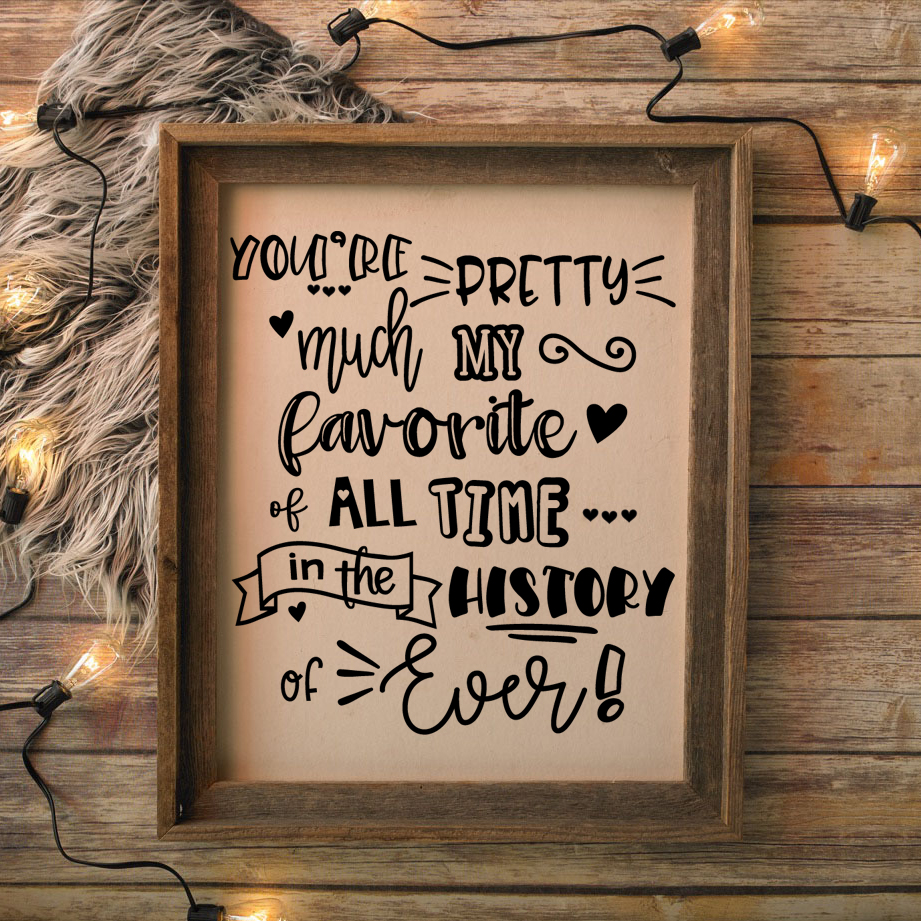 YOU'RE PRETTY
much MY
favorite
of ALL TIME ...
in the HISTORY
of Ever!